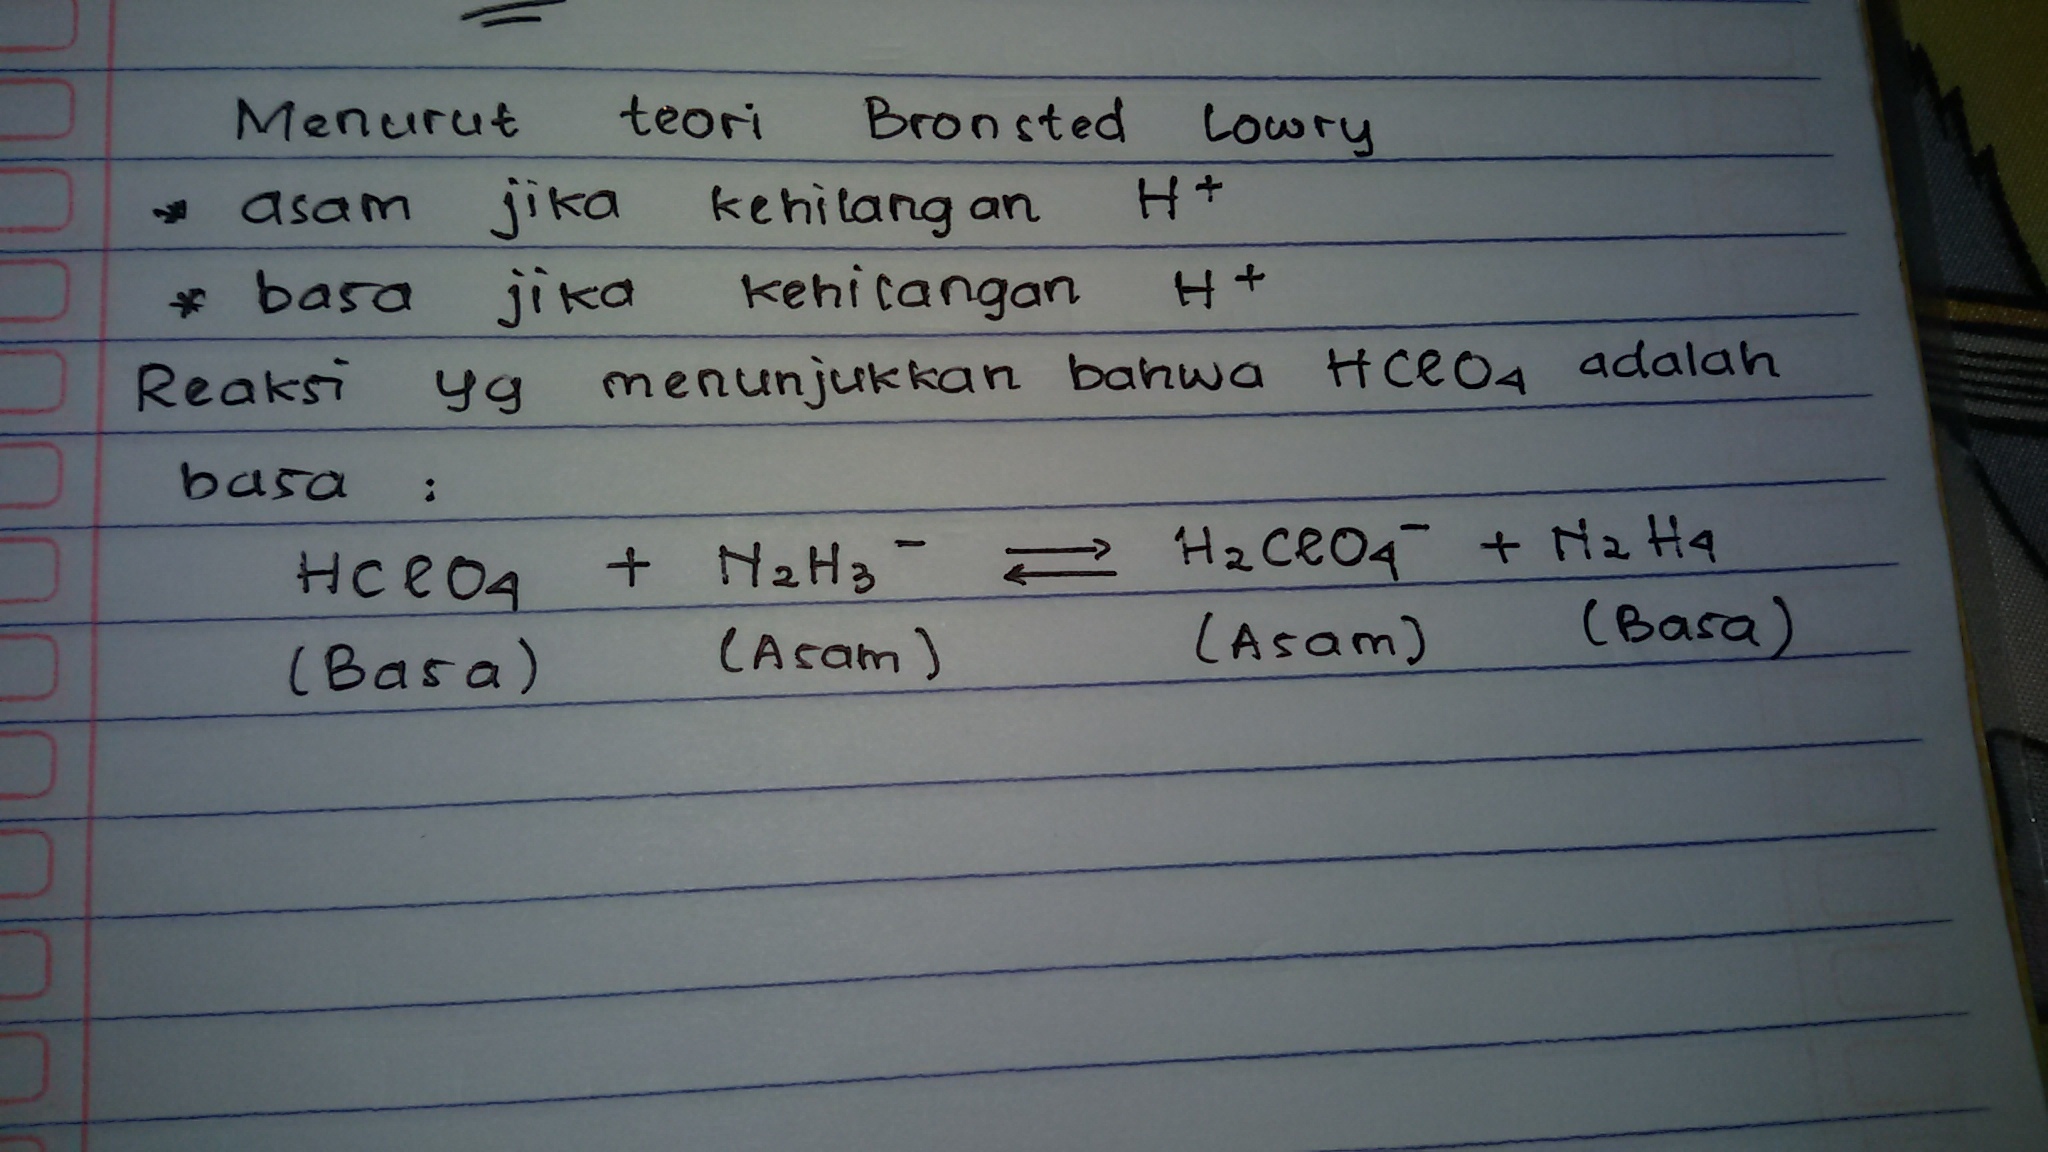 Menurut teori Bronsted Lowry
* asam jika kehilangan H⁺
* basa jika kehilangan H⁺
Reaksi yg menunjukkan bahwa HClO₄ adalah
basa :
HClO₄ + N₂H₃⁻ ⇌ H₂ClO₄⁻ + N₂H₄
(Basa) (Asam) (Asam) (Basa)